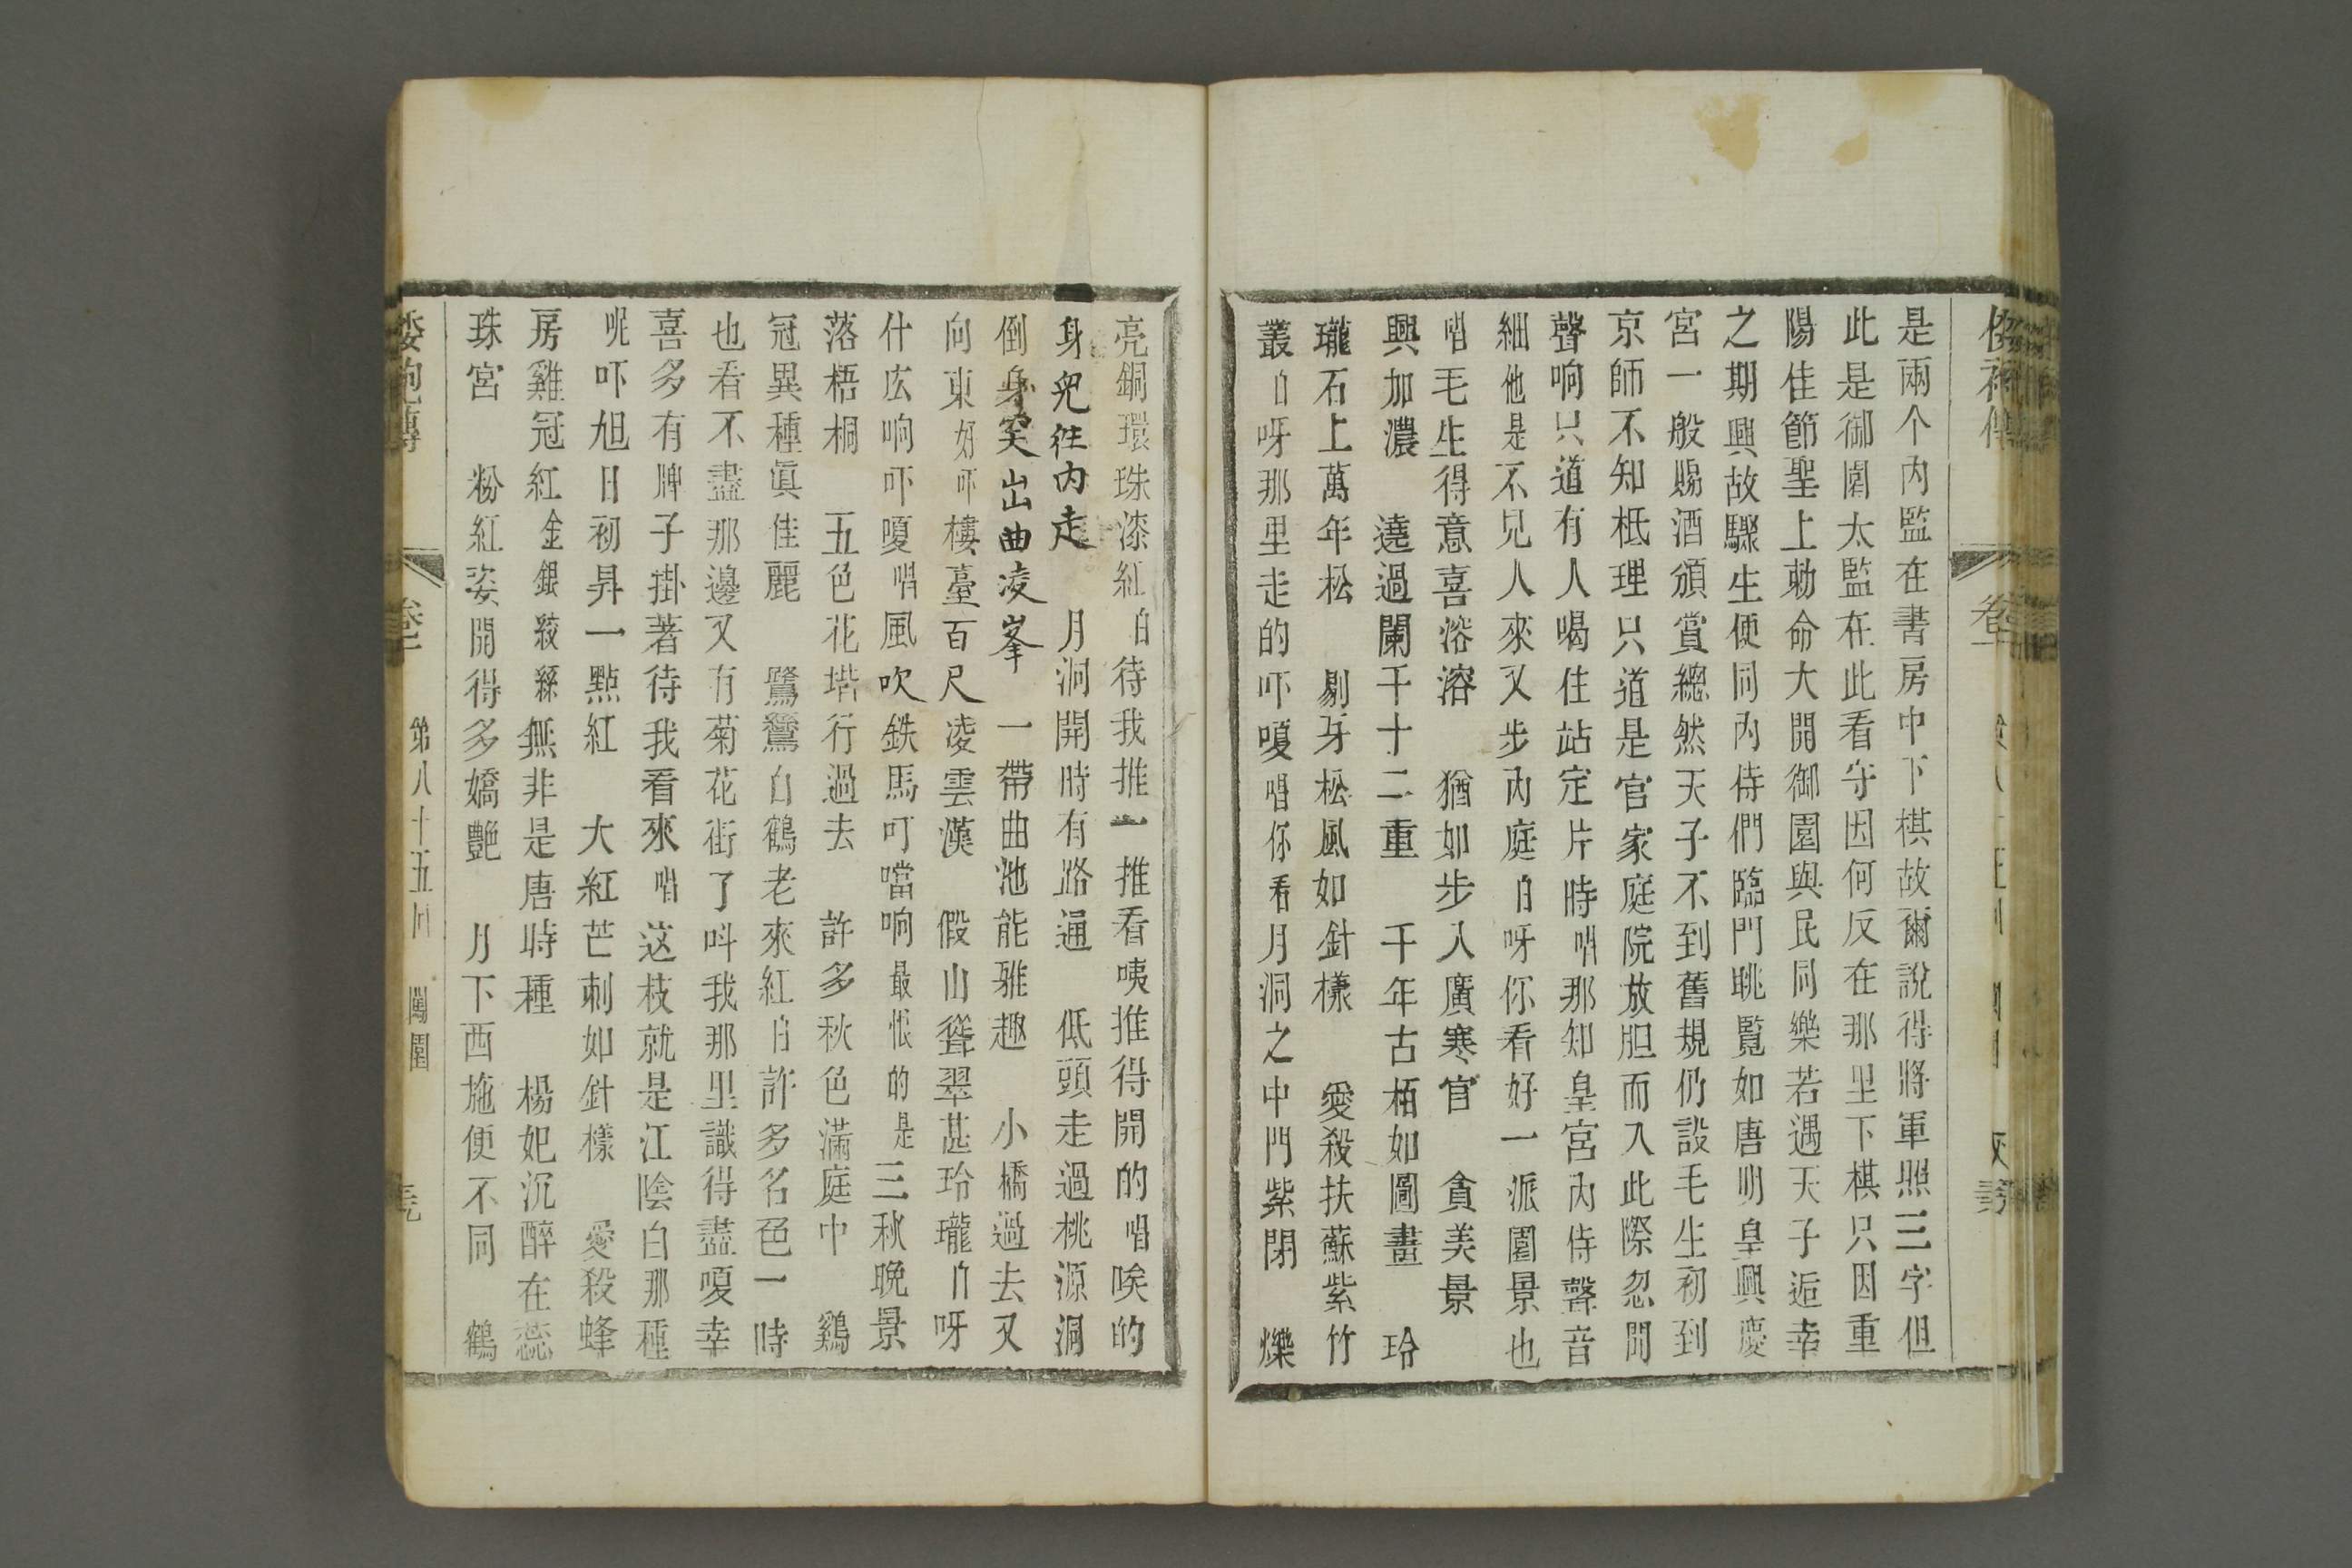 是兩个內監在書房中下棋故爾說得將軍照三字但
此是御園太監在此看守因何反在那里下棋只因重
陽佳節聖上勅命大開御園與民同樂若遇天子逅幸
之期興故驟生便同內侍們臨門眺覽如唐明皇興慶
宮一般賜酒頒賞總然天子不到舊規仍設毛生初到
京師不知柢理只道是官家庭院放胆而入此際忽聞
聲响只道有人喝住站定片時唱那知皇宮內侍聲音
細他是不見人來又步內庭白呀你看好一派園景也
唱毛生得意喜溶溶 猶如步入廣寒宮 貪美景
興加濃 遶過闌干十二重 千年古栢如圖畫 玲
瓏石上萬年松 剔牙松風如針樣 愛殺扶蘇紫竹
叢白呀那里走的吓嗄唱你看月洞之中門紫閉 爍
亮銅環珠漆紅白待我推一推看咦推得開的唱唉的
身兒往內走 月洞開時有路通 低頭走過桃源洞
倒身突出曲凌峯 一帶曲池能雅趣 小橋過去又
向東好吓樓臺百尺凌雲漢 假山聳翠甚玲瓏白呀
什広响吓嗄唱風吹鉄馬叮噹响最恨的是三秋晚景
落梧桐 五色花堦行過去 許多秋色滿庭中 鷄
冠異種眞佳麗 鷺鶿白鶴老來紅白許多名色一時
也看不盡那邊又有菊花街了呌我那里識得盡嗄幸
喜多有牌子掛著待我看來唱这枝就是江陰白那種
呢吓旭日初昇一點紅 大紅芒刺如針樣 愛殺蜂
房雞冠紅金銀絞絲無非是唐時種 楊妃沉醉在蕊
珠宮 粉紅姿開得多嬌艶 月下西施便不同 鶴
倭袍傳 卷十 第八十五回 闖園